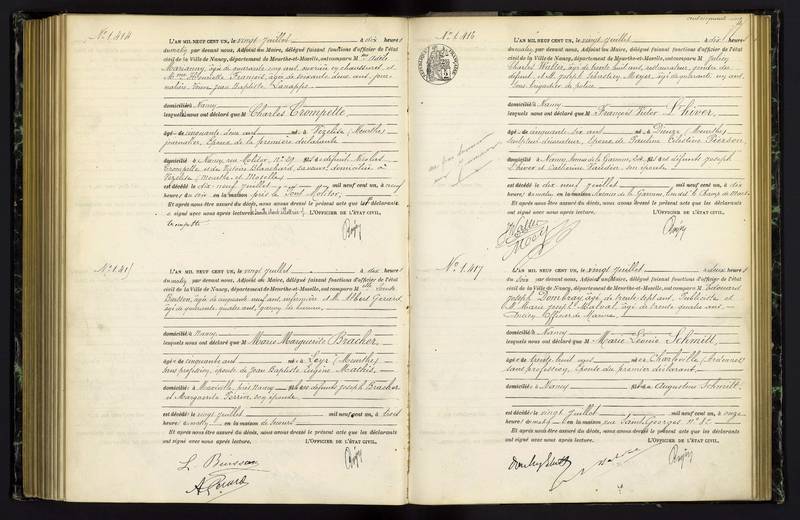 N° 1.414
L'AN MIL NEUF CENT UN, le vingt juillet à dix heures
du matin par devant nous, Adjoint au Maire, délégué faisant fonctions d'officier de l'état
civil de la Ville de Nancy, département de Meurthe-et-Moselle, ont comparu M
âgé de quarante cinq ans, ouvrier en chaussures et
M Henriette François, âgée de soixante deux ans, jour-
nalière, Jean Baptiste
domiciliés à Nancy
lesquels nous ont déclaré que M Charles Trompette,
âgé de cinquante deux ans né à Vézelise (Meurthe)
journalier, Époux de la première déclarante
domicilié à Nancy, rue Molitor, N° 29, fils de défunt Nicolas
Trompette et de Victoire Blanchard, sa veuve, domiciliée à
Vézelise (Meurthe-et-Moselle)
est décédé le dix-neuf juillet mil neuf cent un, à neuf
heures du soir en la maison près le Pont Molitor.
Et après nous être assuré du décès, nous avons dressé le présent acte que les déclarants
signé avec nous après lecture. L'OFFICIER DE L'ÉTAT CIVIL,
N° 1.415
L'AN MIL NEUF CENT UN, le vingt juillet à dix heures
du matin par devant nous, Adjoint au Maire, délégué faisant fonctions d'officier de l'état
civil de la Ville de Nancy, département de Meurthe-et-Moselle, ont comparu M
Buisson, âgée de cinquante neuf ans, infirmière et M. Albert Gérard,
âgé de quarante quatre ans, garçon de bureau
domiciliés à Nancy
lesquels nous ont déclaré que M Marie Marguerite Bracher,
âgée de cinquante ans née à Leyr (Meurthe)
sans profession, épouse de Jean Baptiste Eugène Mathis,
domiciliée à Maxéville, près Nancy fille de défunts Joseph Bracher
et Marguerite Perrin, son épouse
est décédée le vingt juillet mil neuf cent un, à trois
heures du matin en la maison de Secours
Et après nous être assuré du décès, nous avons dressé le présent acte que les déclarants
ont signé avec nous après lecture. L'OFFICIER DE L'ÉTAT CIVIL,
L. Buisson
A. Gérard
N° 1.416
L'AN MIL NEUF CENT UN, le vingt juillet à dix heures
du matin par devant nous, Adjoint au Maire, délégué faisant fonctions d'officier de l'état
civil de la Ville de Nancy, département de Meurthe-et-Moselle, ont comparu M Julien
Charles Walter, âgé de trente huit ans, restaurateur, gendre du
défunt, et M. Joseph Meyer, âgé de quarante cinq ans,
Sous brigadier de police
domiciliés à Nancy
lesquels nous ont déclaré que M François Victor L'hiver,
âgé de cinquante six ans né à Dieuze (Meurthe)
sculpteur, Époux de Pauline Célestine Pierson
domicilié à Nancy, fils de défunts Joseph
L'hiver et Catherine son épouse
est décédé le dix neuf juillet mil neuf cent un, à dix
heures du matin en la maison de la Garenne, lieudit le Champ de Mars
Et après nous être assuré du décès, nous avons dressé le présent acte que les déclarants
ont signé avec nous après lecture. L'OFFICIER DE L'ÉTAT CIVIL,
N° 1.417
L'AN MIL NEUF CENT UN, le vingt juillet à deux heures
du soir par devant nous, Adjoint au Maire, délégué faisant fonctions d'officier de l'état
civil de la Ville de Nancy, département de Meurthe-et-Moselle, ont comparu M Édouard
Joseph Dombray, âgé de trente sept ans, Publiciste et
M. Marie Joseph âgé de trente quatre ans,
Officier de Marine
domiciliés à Nancy
lesquels nous ont déclaré que M Marie Léonie Schmitt,
âgée de trente huit ans née à Charleville (Ardennes)
sans profession, Épouse du premier déclarant
domiciliée à Nancy fille de Augustine Schmitt.
est décédée le vingt juillet mil neuf cent un, à onze
heures du matin en la maison rue Saint Georges N° 82
Et après nous être assuré du décès, nous avons dressé le présent acte que les déclarants
ont signé avec nous après lecture. L'OFFICIER DE L'ÉTAT CIVIL,